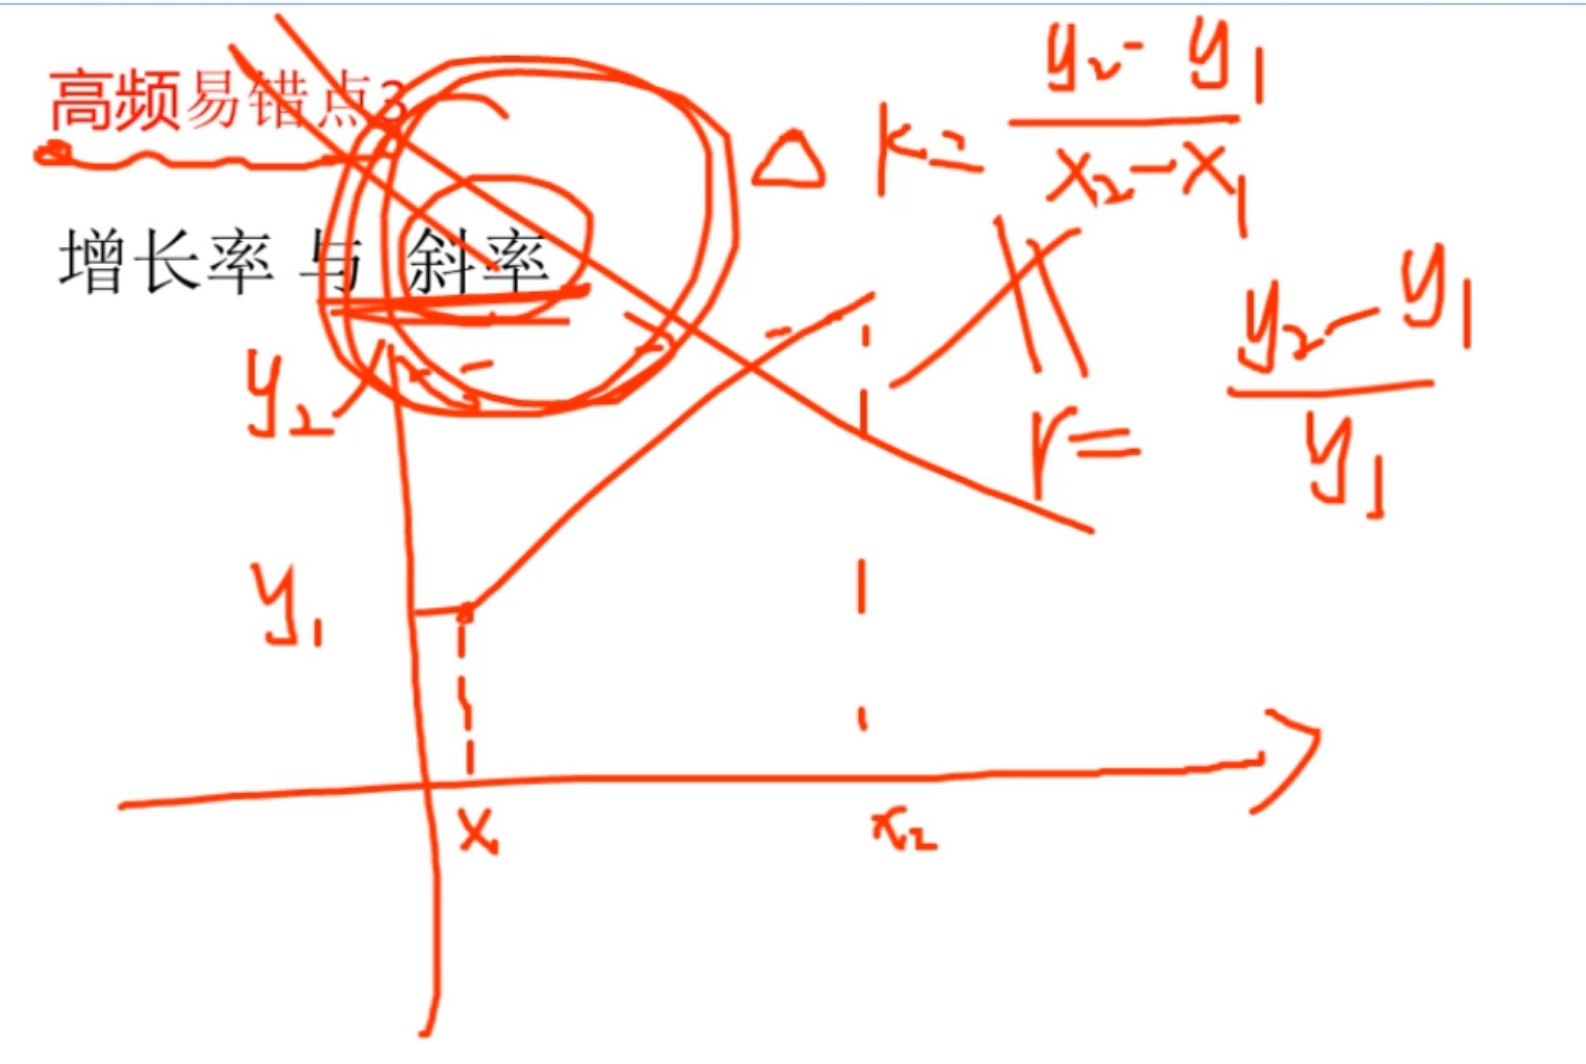 高频易错点3
增长率 与 斜率
△ k = (y₂ - y₁) / (x₂ - x₁)
r = (y₂ - y₁) / y₁
y₂
y₁
x₁ x₂